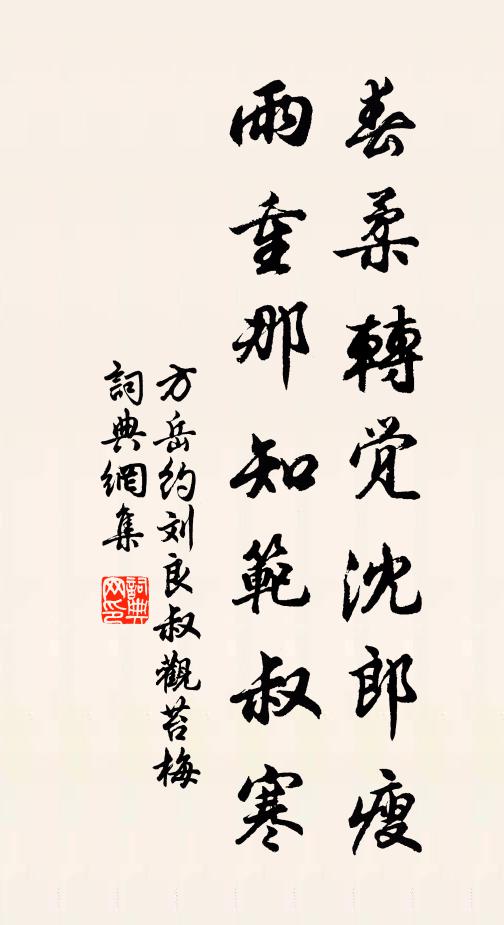 春柔轉觉沈郎瘦
雨重那知範叔寒
方岳约刘良叔觀苔梅
詞典網集
詞典網印